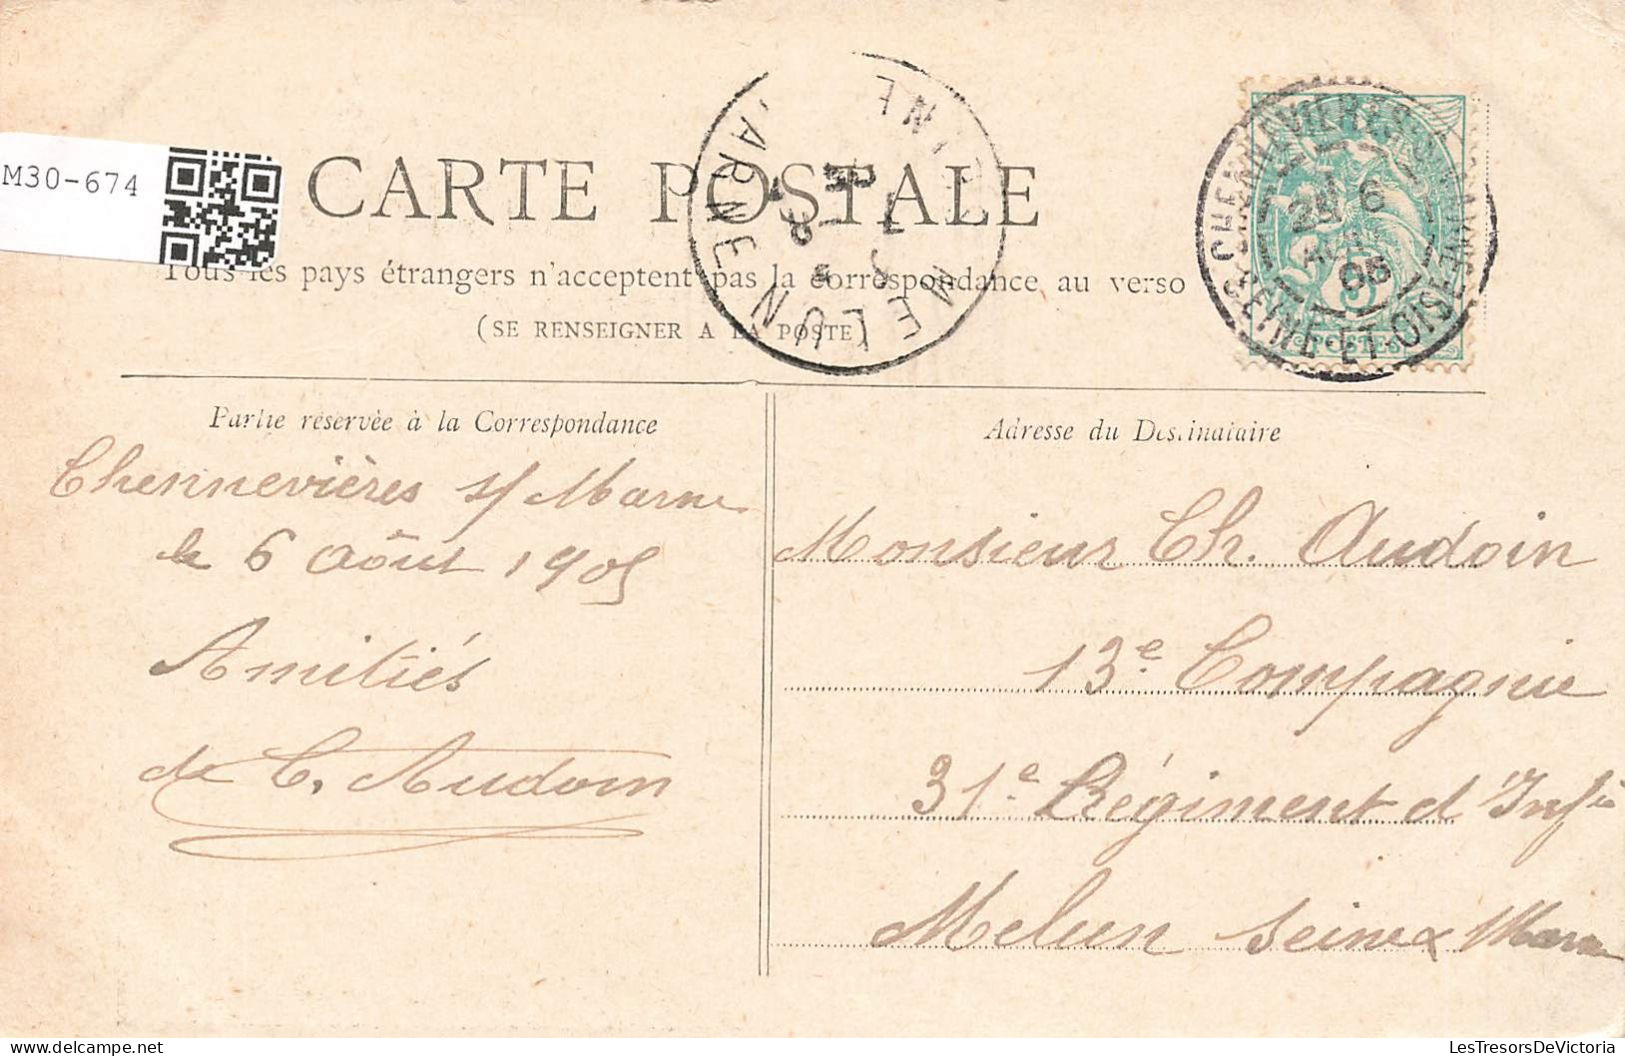 M30-674
CARTE POSTALE
Tous les pays étrangers n'acceptent pas la correspondance au verso
(SE RENSEIGNER A LA POSTE)
MELUN
CHENNEVIÈRES-SUR-MARNE
6
AOUT
SEINE-ET-OISE
5
POSTES
Partie réservée à la Correspondance
Chennevières s/ Marne
le 6 Août 1905
Amitiés
de C. Audoin
Adresse du Destinataire
Monsieur Ch. Audoin
13e Compagnie
31e Régiment d'Infie
Melun Seine & Marne
LesTresorsDeVictoria